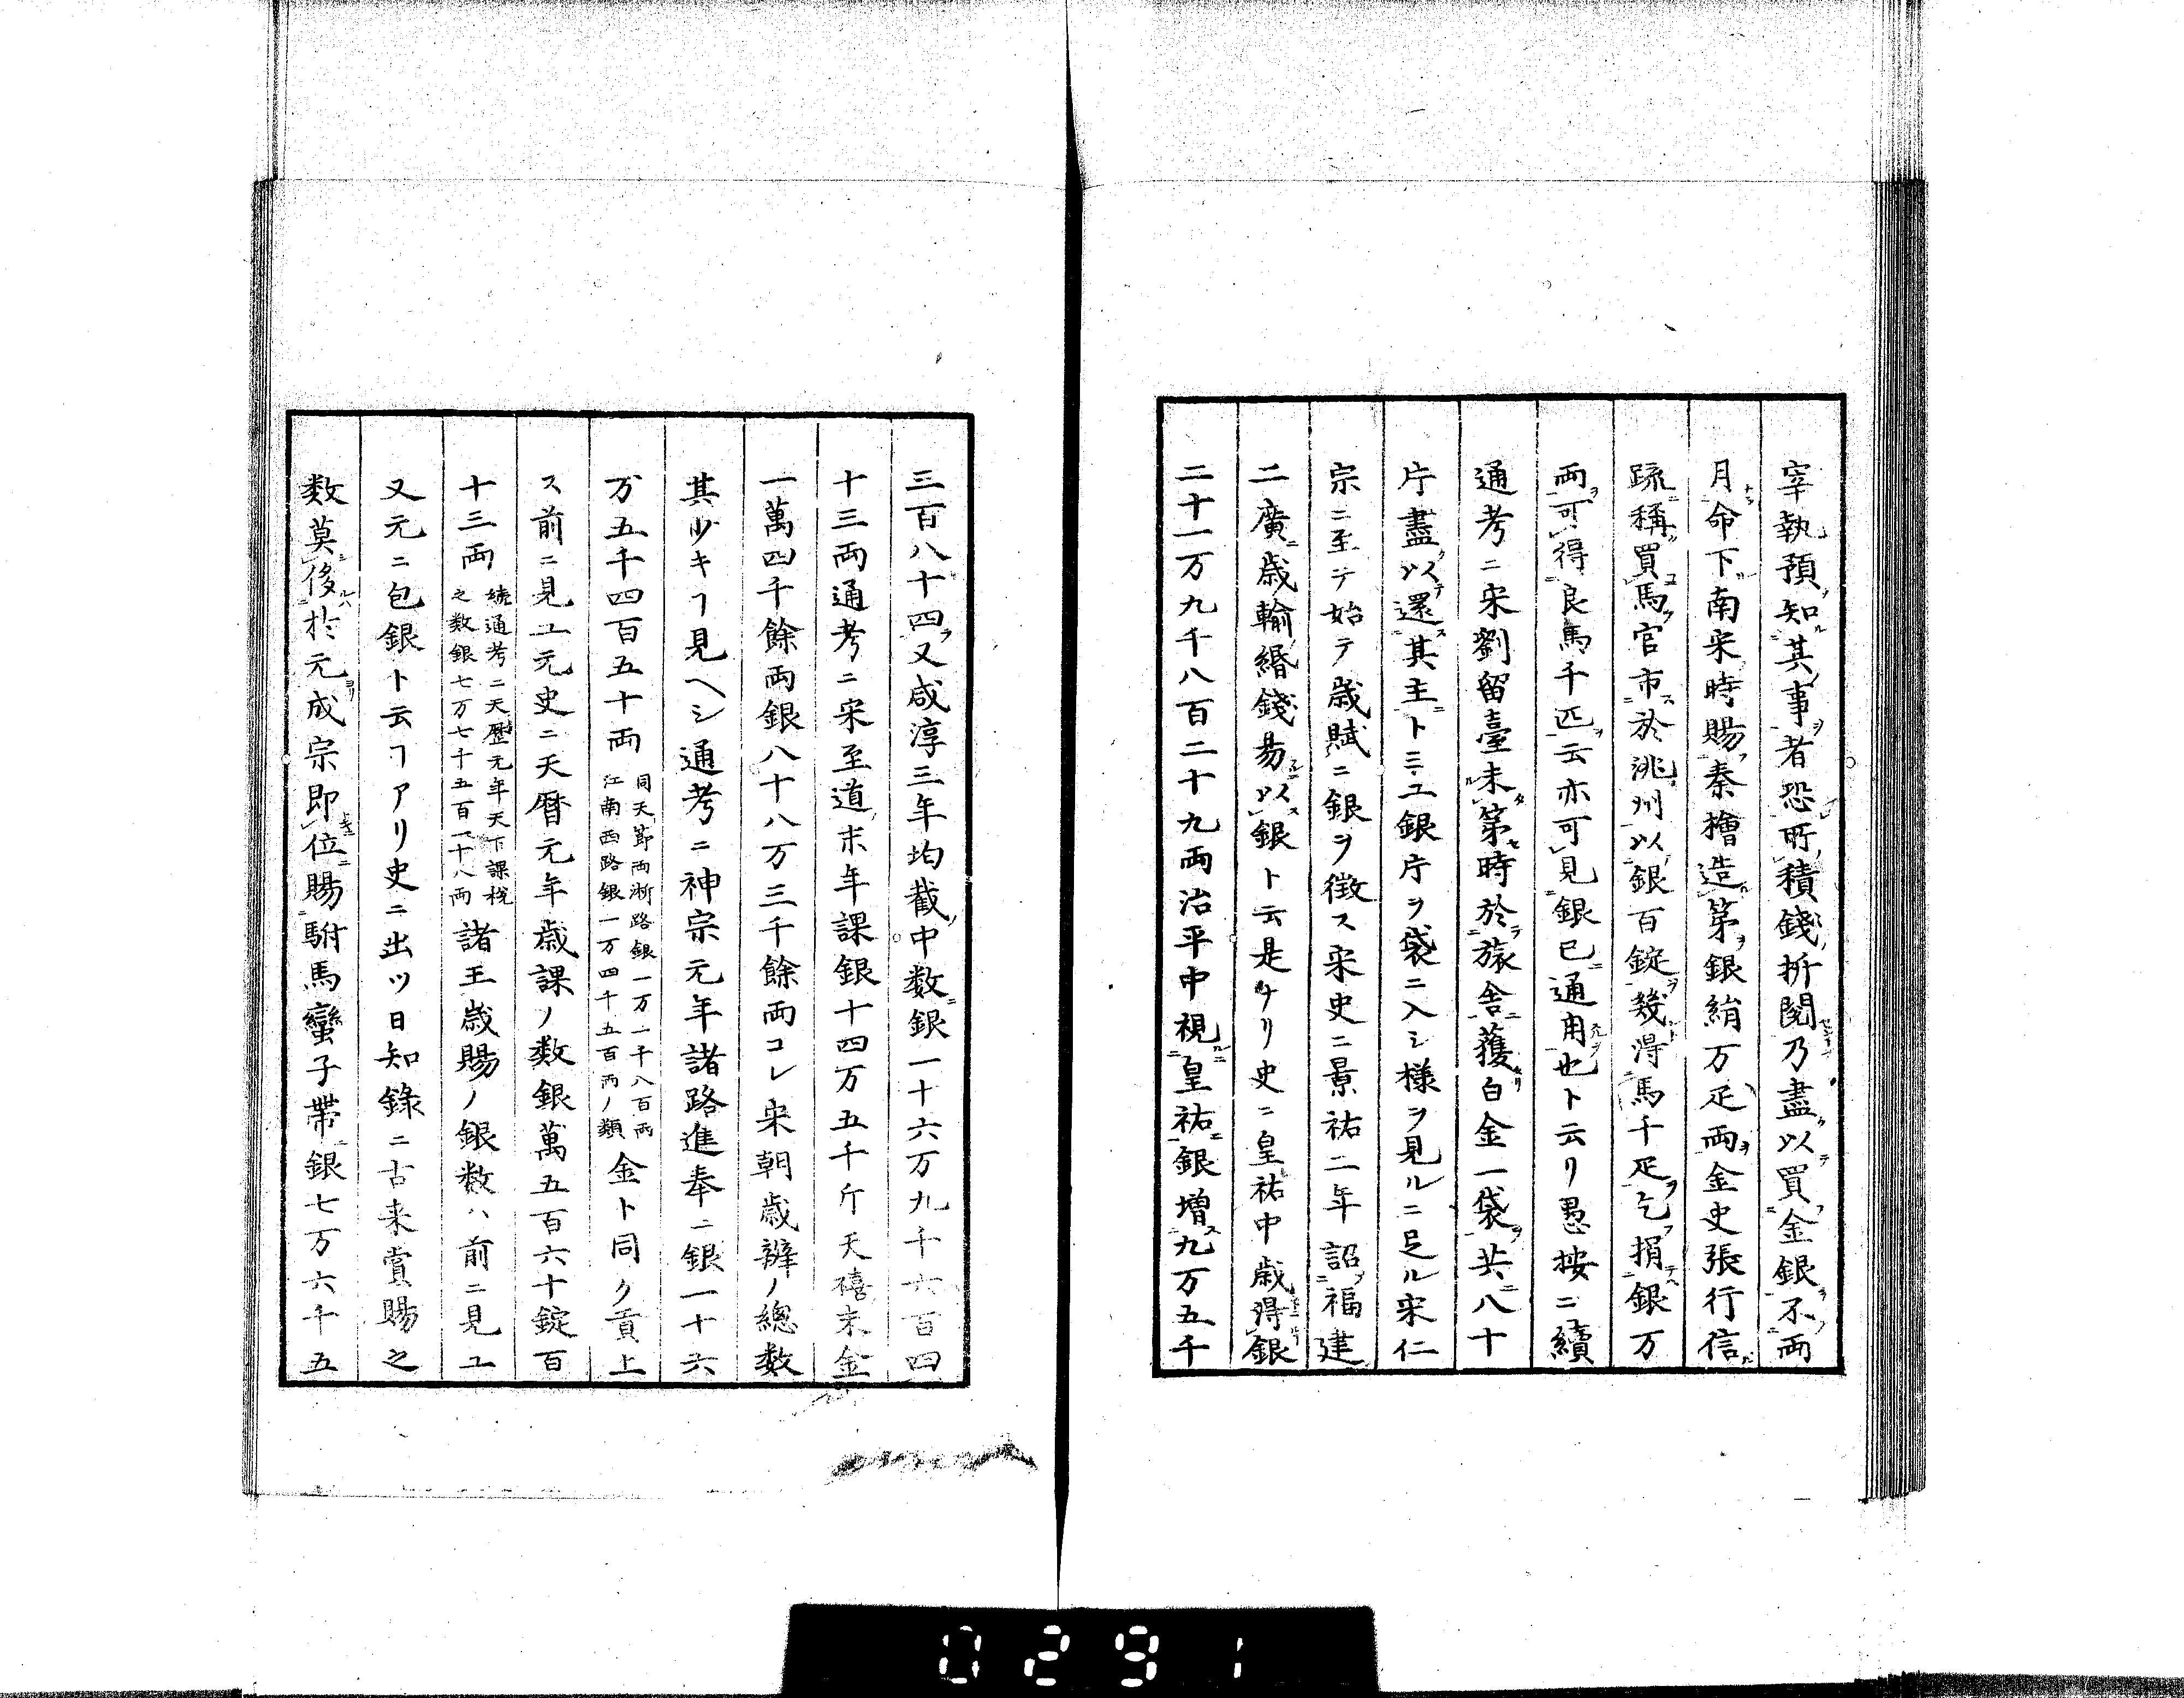 宰執預知其事者恐所積錢折閱乃盡以買金銀不両
月命下南宋時賜秦檜造第銀絹万疋両金史張行信
疏稱買馬官市於洮州以銀百錠幾得馬千疋乞捐銀万
両可得良馬千匹云亦可見銀已通用也ト云リ愚按ニ續
通考ニ宋劉留臺未第時於旅舎獲白金一袋共八十
片盡以還其主トミユ銀片ヲ袋ニ入シ様ヲ見ルニ足ル宋仁
宗ニ至テ始テ歳賦ニ銀ヲ徴ス宋史ニ景祐二年詔福建
二廣歳輸緡錢易以銀ト云是ナリ史ニ皇祐中歳得銀
二十一万九千八百二十九両治平中視皇祐銀増九万五千
三百八十四又咸淳三年均截中数銀一十六万九千六百四
十三両通考ニ宋至道末年課銀十四万五千斤天禧末金
一萬四千餘両銀八十八万三千餘両コレ宋朝歳辦ノ總数
其少キヿ見ヘシ通考ニ神宗元年諸路進奉ニ銀一十六
万五千四百五十両同天節両浙路銀一万一千八百両江南西路銀一万四千五百両ノ類金ト同ク貢上
ス前ニ見ユ元史ニ天暦元年歳課ノ数銀萬五百六十錠百
十三両続通考ニ天歴元年天下課税之数銀七万七千五百一十八両諸王歳賜ノ銀数ハ前ニ見ユ
又元ニ包銀ト云ヿアリ史ニ出ツ日知錄ニ古来賞賜之
数莫侈於元成宗即位賜駙馬蠻子帯銀七万六千五
0291